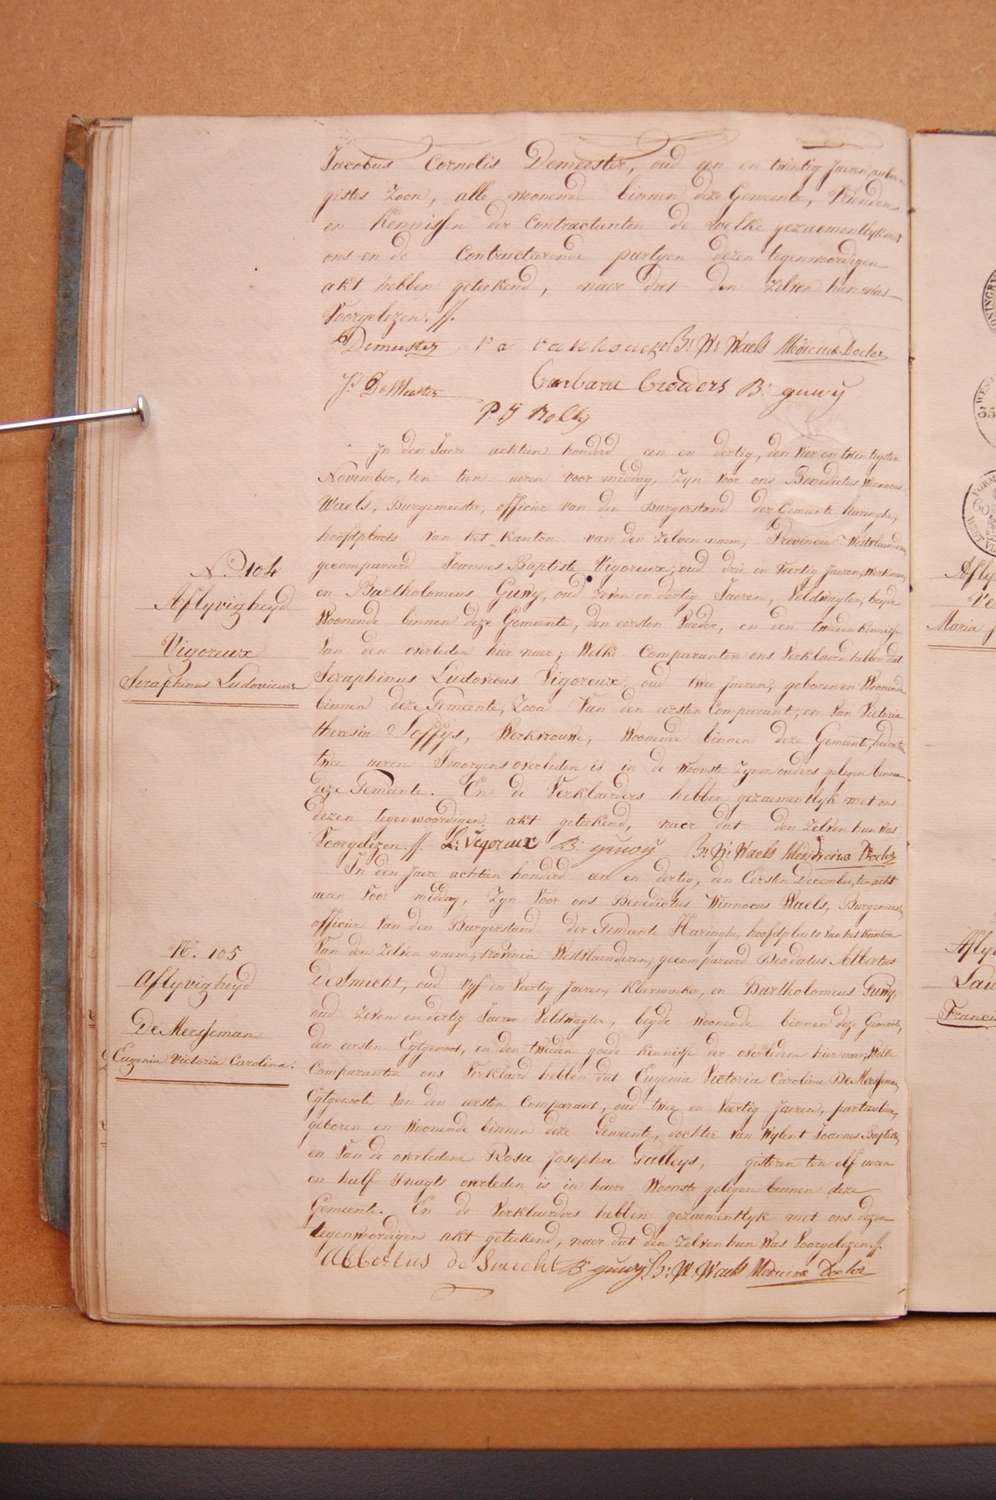 Jacobus Cornelis Demeester, oud een en twintig Jaeren,
gistes Zoon, alle woonende binnen deze Gemeente, Vrienden
en Kennissen der Contractanten de welke gezaementlyk met
ons en de Contracterende partyen dezen tegenwoordigen
akt hebben geteekend, naer dat den zelven hun was
Voorgelezen. //.
Demeester B: W: Waels Medicinæ Doctor
J: De Meester Barbara Crooders B: guwy
P J Rolly
In den Jaere achtien honderd een en dertig, den vier en twintigsten
November, ten tien uren voor middag, Zyn voor ons Benedictus Winnocus
Waels, Burgemeester, officier van den Burgerstand der Gemeente haringhe,
hoofdplaets van het Kanton van den zelven naem, Provincie Westvlaenderen
gecompareerd Joannes Baptiste Vigoreux, oud drie en Veertig Jaeren, Werkman,
en Bartholomeus Guwy, oud zeven en dertig Jaeren, Veldwagter, beyde
Woonende binnen deze Gemeente, den eersten Vader, en den tweeden kennisse
Van den overleden hier naer; Welke Comparanten ons Verklaerd hebben dat
Seraphinus Ludovicus Vigoreux, oud twee Jaeren, geboren en Woonende
binnen deze Gemeente, Zoon Van den eersten Comparant, en Van Victoria
theresia Soffys, Werkvrouwe, Woonende binnen deze Gemeente, heden ten
twee uren Smorgens overleden is in de Woonste Zyner ouders gelegen binnen
deze Gemeente. En de Verklaerders hebben gezaementlyk met ons
dezen tegenwoordigen akt geteekend, naer dat den Zelven hun was
Voorgelezen. //. Vigoreux B: guwy B: W: Waels Medicinæ Doctor
In den Jaere achtien honderd een en dertig, den Eersten December, ten acht
uren Voor middag, Zyn Voor ons Benedictus Winnocus Waels, Burgemeester,
officier Van den Burgerstand der Gemeente Haringhe, hoofdplaets van het Kanton
Van den Zelven naem, provincie Westvlaenderen, gecompareerd Deodatus Albertus
DeSmicht, oud vyf en Veertig Jaeren, en Bartholomeus Guwy,
oud Zeven en dertig Jaeren Veldwagter, beyde Woonende binnen deze Gemeente,
den eersten Egtgenoot, en den tweeden goede kennisse der overleden hier naer; Welke
Comparanten ons Verklaerd hebben dat Eugenia Victoria Carolina DeMersseman,
Egtgenote Van den eersten Comparant, oud twee en Veertig Jaeren, particuliere,
geboren en Woonende binnen deze Gemeente, dochter Van Wylent Joannes Baptiste,
en Van de overledene Rosa Josepha Galleys, gisteren ten elf uren
en half Snagts overleden is in haere Woonste gelegen binnen deze
Gemeente. En de Verklaerders hebben gezaementlyk met ons dezen
tegenwoordigen akt geteekend, naer dat den Zelven hun Was Voorgelezen. //.
Albertus de Smicht B: guwy B: W: Waels Medicinæ Doctor
N.o 104
Aflyvigheyd
Vigoreux
Seraphinus Ludovicus
N.o 105
Aflyvigheyd
DeMersseman
Eugenia Victoria Carolina.
Maria
Franci